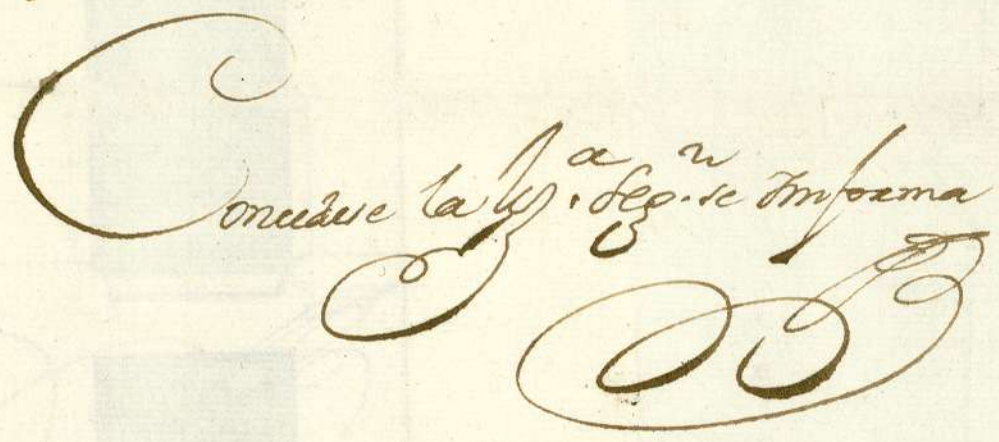 Concedese la liz.ª seg.n se Informa